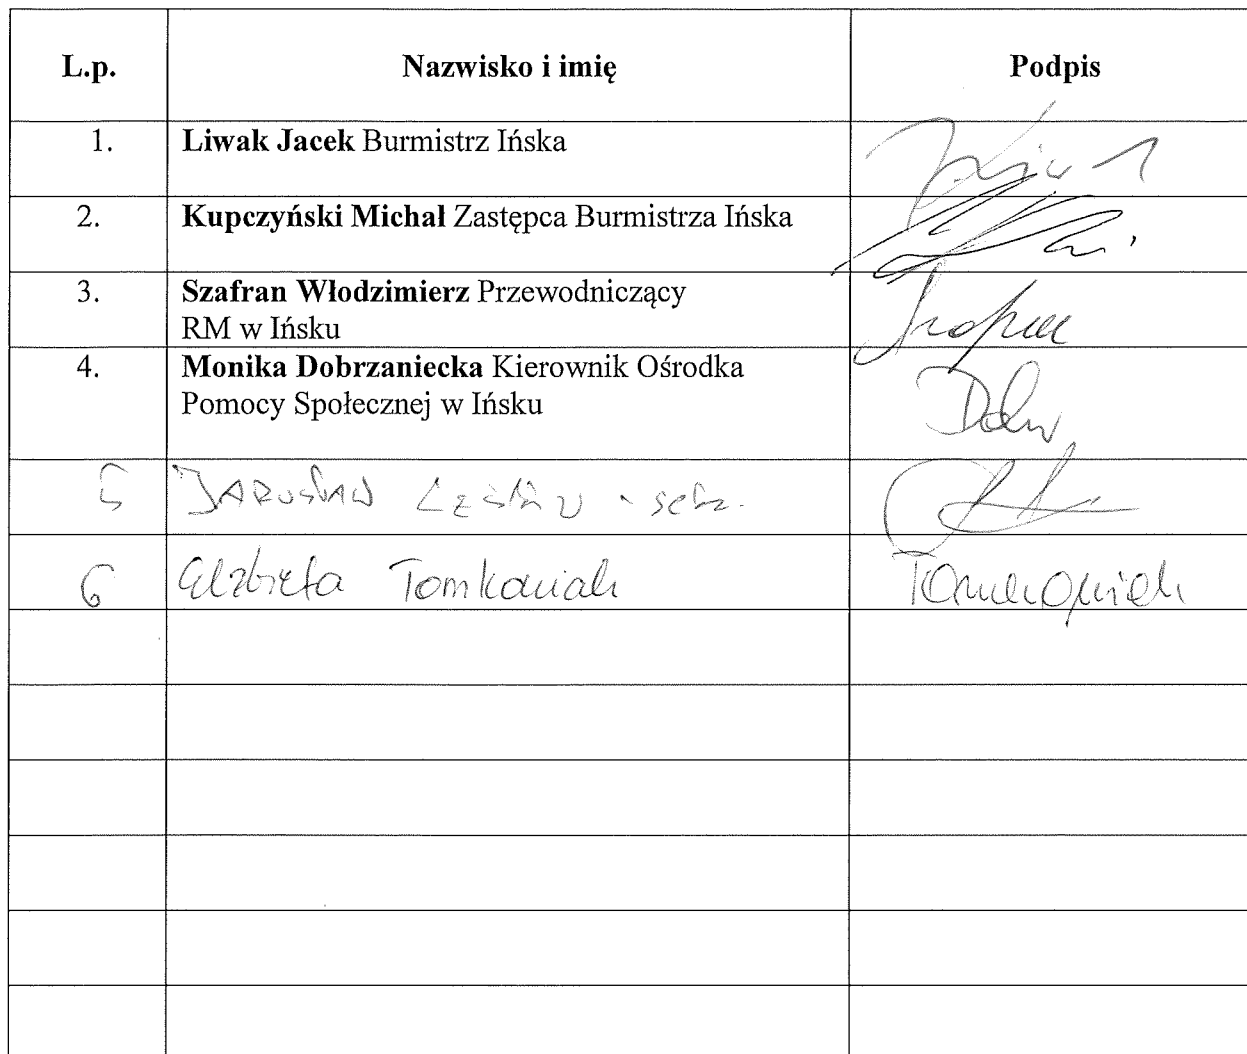 L.p. Nazwisko i imię Podpis
1. Liwak Jacek Burmistrz Ińska
2. Kupczyński Michał Zastępca Burmistrza Ińska
3. Szafran Włodzimierz Przewodniczący
RM w Ińsku
4. Monika Dobrzaniecka Kierownik Ośrodka
Pomocy Społecznej w Ińsku
5 JAROSŁAW
6 Elżbieta Tomkowiak